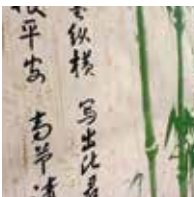 纵横 写出此君
根平安 高节清